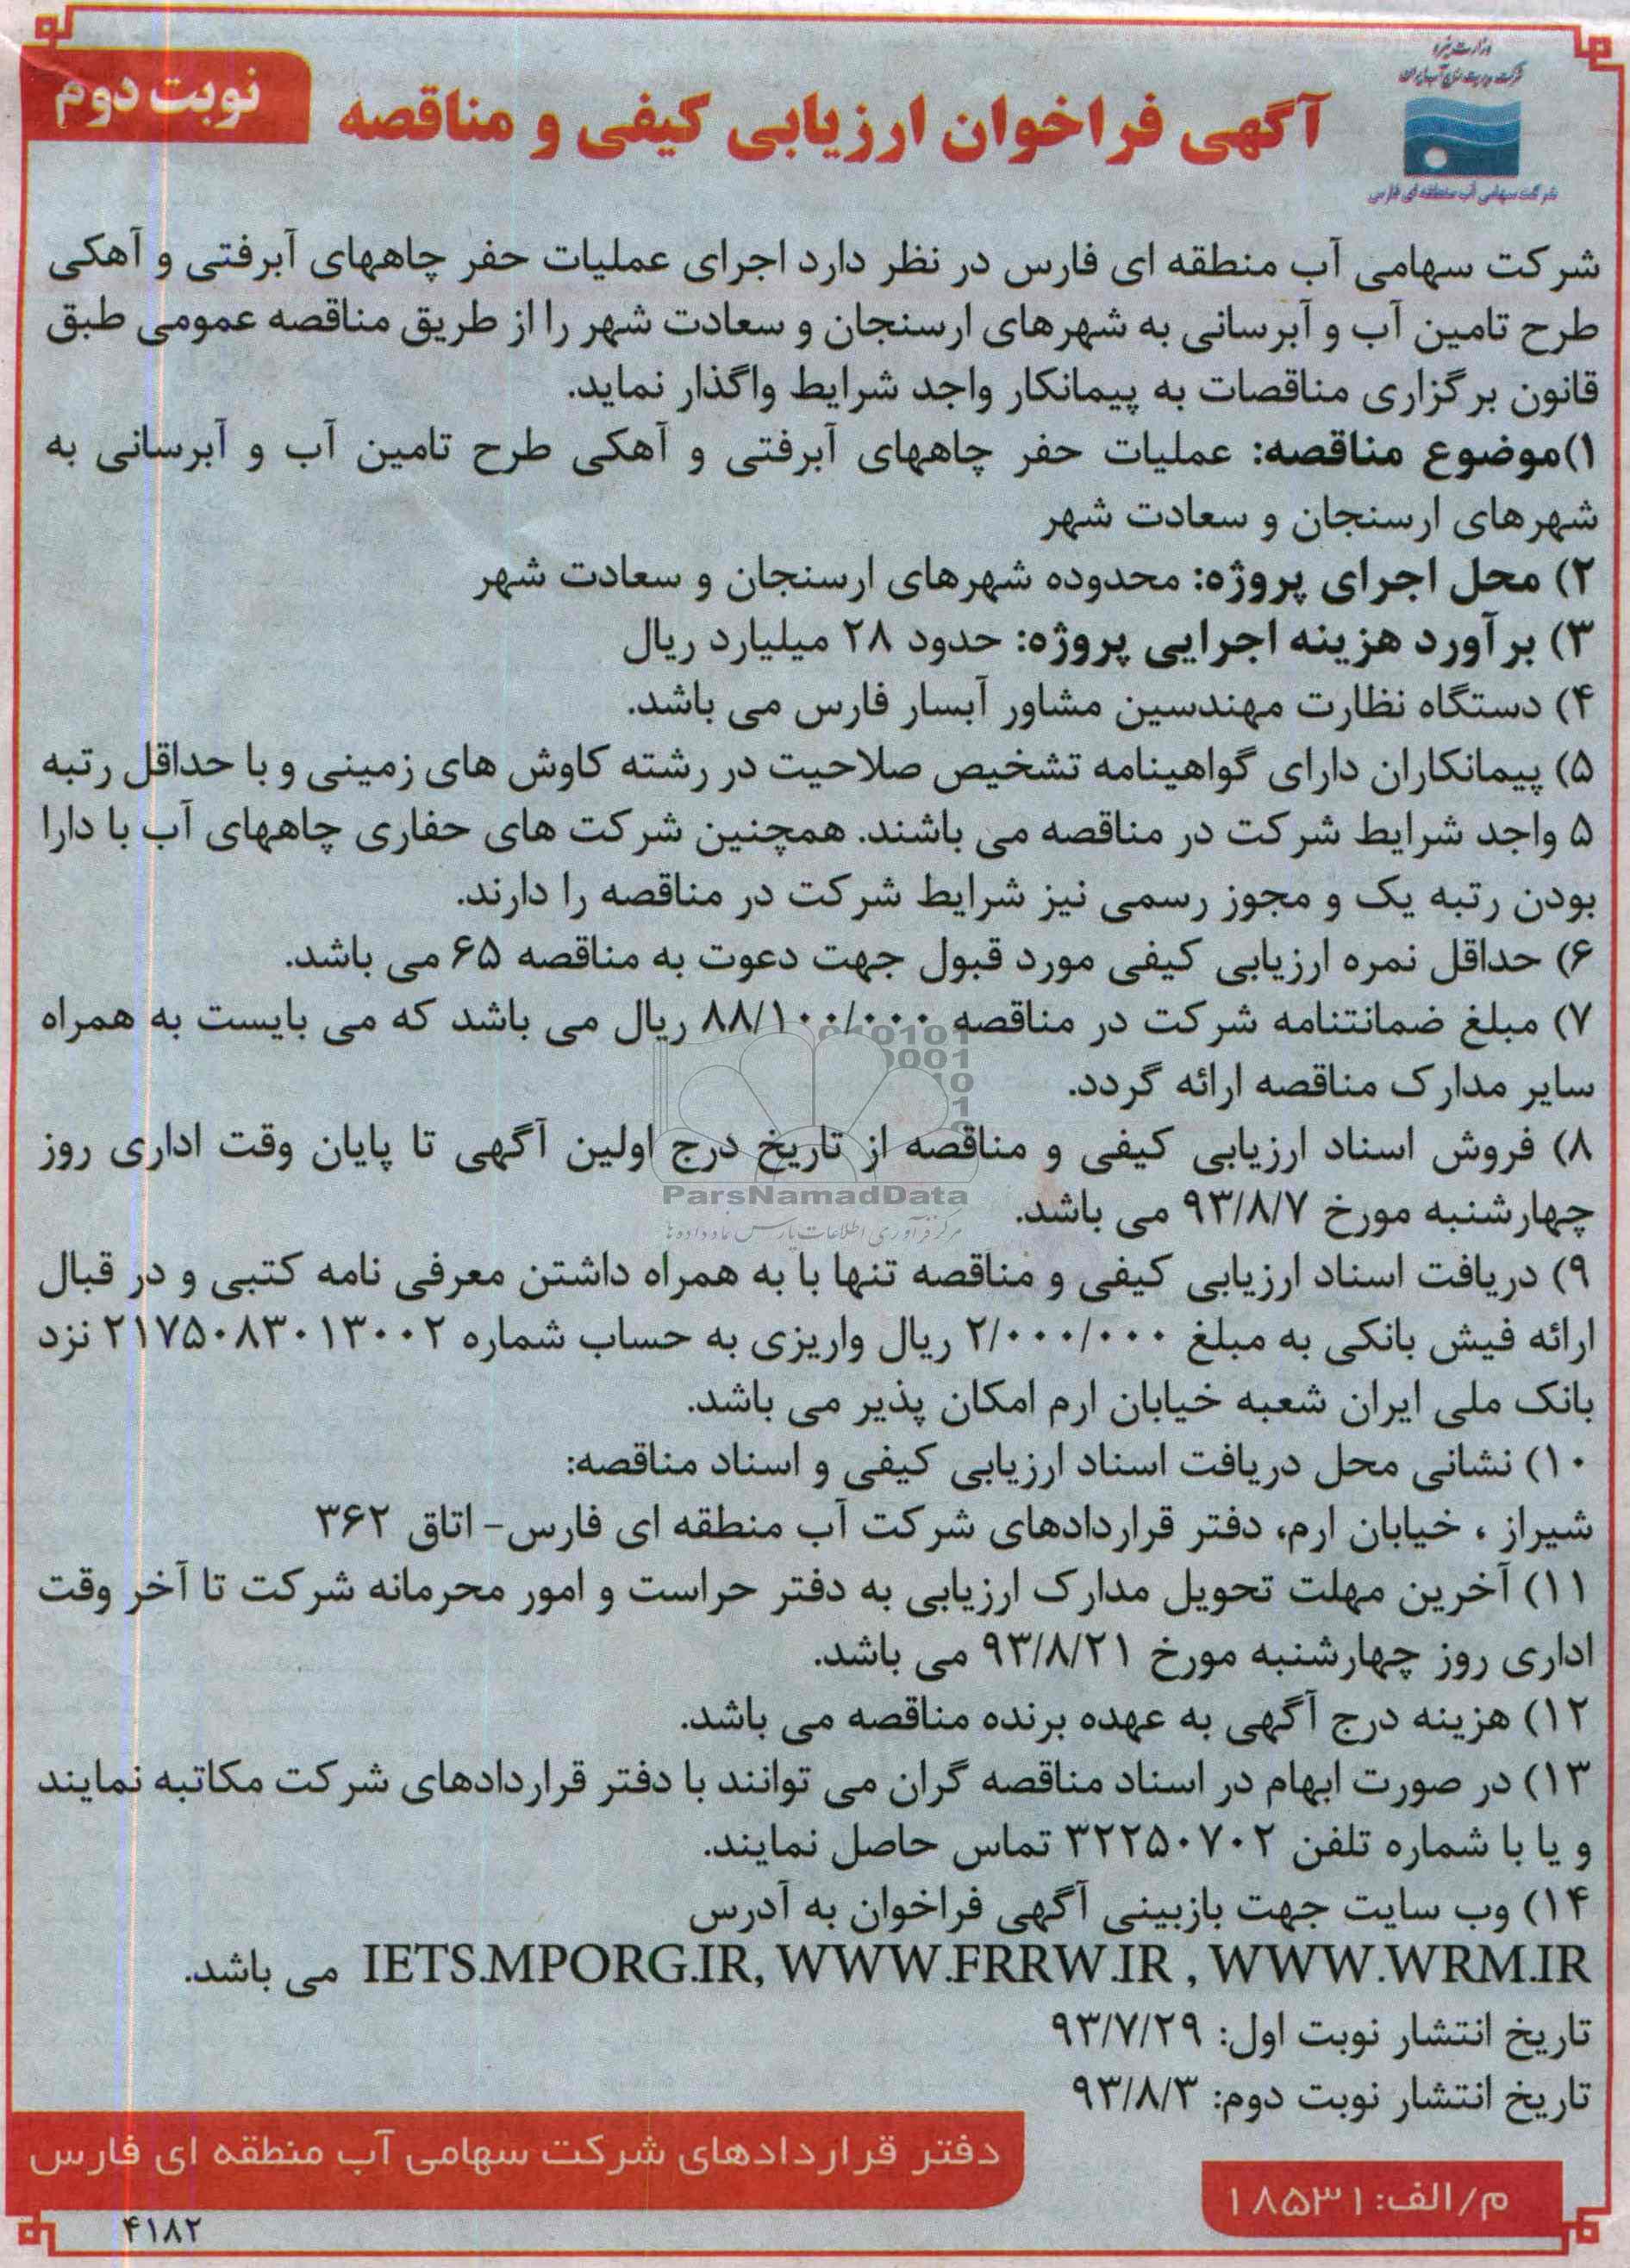 وزارت نیرو
شرکت مدیریت منابع آب ایران
شرکت سهامی آب منطقه ای فارس
نوبت دوم
آگهی فراخوان ارزیابی کیفی و مناقصه
شرکت سهامی آب منطقه ای فارس در نظر دارد اجرای عملیات حفر چاههای آبرفتی و آهکی
طرح تامین آب و آبرسانی به شهرهای ارسنجان و سعادت شهر را از طریق مناقصه عمومی طبق
قانون برگزاری مناقصات به پیمانکار واجد شرایط واگذار نماید.
۱)موضوع مناقصه: عملیات حفر چاههای آبرفتی و آهکی طرح تامین آب و آبرسانی به
شهرهای ارسنجان و سعادت شهر
۲) محل اجرای پروژه: محدوده شهرهای ارسنجان و سعادت شهر
۳) برآورد هزینه اجرایی پروژه: حدود ۲۸ میلیارد ریال
۴) دستگاه نظارت مهندسین مشاور آبسار فارس می باشد.
۵) پیمانکاران دارای گواهینامه تشخیص صلاحیت در رشته کاوش های زمینی و با حداقل رتبه
۵ واجد شرایط شرکت در مناقصه می باشند. همچنین شرکت های حفاری چاههای آب با دارا
بودن رتبه یک و مجوز رسمی نیز شرایط شرکت در مناقصه را دارند.
۶) حداقل نمره ارزیابی کیفی مورد قبول جهت دعوت به مناقصه ۶۵ می باشد.
۷) مبلغ ضمانتنامه شرکت در مناقصه ۸۸/۱۰۰/۰۰۰ ریال می باشد که می بایست به همراه
سایر مدارک مناقصه ارائه گردد.
۸) فروش اسناد ارزیابی کیفی و مناقصه از تاریخ درج اولین آگهی تا پایان وقت اداری روز
چهارشنبه مورخ ۹۳/۸/۷ می باشد.
ParsNamadData
مرکز فرآوری اطلاعات پارس نماد داده ها
۹) دریافت اسناد ارزیابی کیفی و مناقصه تنها با به همراه داشتن معرفی نامه کتبی و در قبال
ارائه فیش بانکی به مبلغ ۲/۰۰۰/۰۰۰ ریال واریزی به حساب شماره ۲۱۷۵۰۸۳۰۱۳۰۰۲ نزد
بانک ملی ایران شعبه خیابان ارم امکان پذیر می باشد.
۱۰) نشانی محل دریافت اسناد ارزیابی کیفی و اسناد مناقصه:
شیراز ، خیابان ارم، دفتر قراردادهای شرکت آب منطقه ای فارس- اتاق ۳۶۲
۱۱) آخرین مهلت تحویل مدارک ارزیابی به دفتر حراست و امور محرمانه شرکت تا آخر وقت
اداری روز چهارشنبه مورخ ۹۳/۸/۲۱ می باشد.
۱۲) هزینه درج آگهی به عهده برنده مناقصه می باشد.
۱۳) در صورت ابهام در اسناد مناقصه گران می توانند با دفتر قراردادهای شرکت مکاتبه نمایند
و یا با شماره تلفن ۳۲۲۵۰۷۰۲ تماس حاصل نمایند.
۱۴) وب سایت جهت بازبینی آگهی فراخوان به آدرس
IETS.MPORG.IR, WWW.FRRW.IR , WWW.WRM.IR می باشد.
تاریخ انتشار نوبت اول: ۹۳/۷/۲۹
تاریخ انتشار نوبت دوم: ۹۳/۸/۳
دفتر قراردادهای شرکت سهامی آب منطقه ای فارس
م/الف: ۱۸۵۳۱
۴۱۸۲